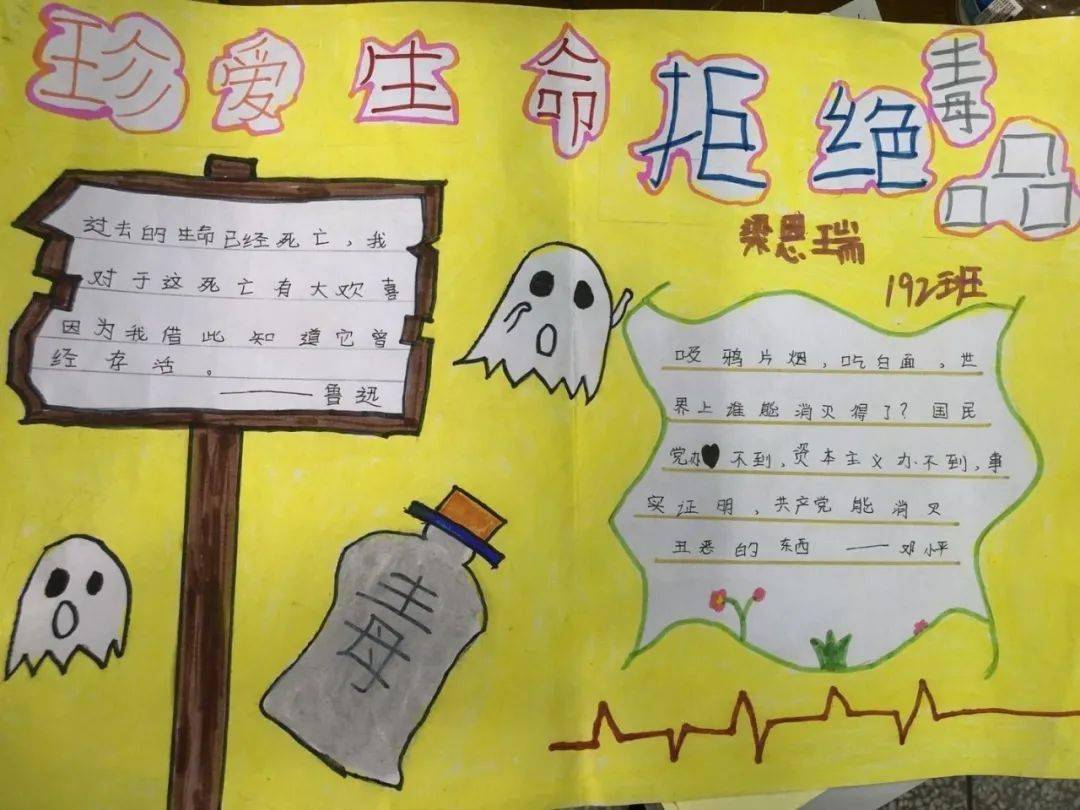 珍爱生命拒绝毒品
梁恩瑞
192班
过去的生命已经死亡，我
对于这死亡有大欢喜
因为我借此知道它曾
经存活。
——鲁迅
吸鸦片烟，吃白面，世
界上谁能消灭得了？国民
党办不到，资本主义办不到，事
实证明，共产党能消灭
丑恶的东西——邓小平
毒